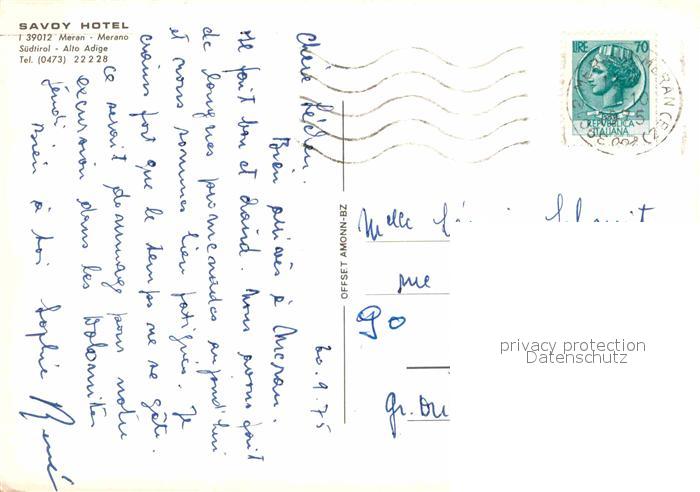 SAVOY HOTEL
I 39012 Meran - Merano
Südtirol - Alto Adige
Tel. (0473) 22228
20.9.75
Chère
Bien arrivés à Meran.
Il fait bon et chaud. Nous avons fait
de longues promenades aujourd'hui
et nous sommes bien fatigués. Je
crains fort que le temps ne se gâte.
Ce serait dommage pour notre
excursion dans les Dolomites
jeudi.
Bien à toi Sophie René
OFFSET AMONN-BZ
LIRE 70
REPUBBLICA
ITALIANA
MERAN
Melle
rue
90
Gr. Du
privacy protection
Datenschutz